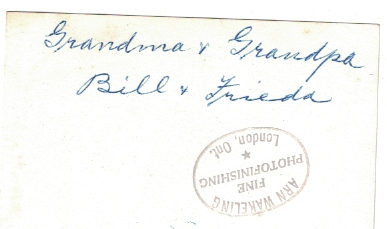 Grandma & Grandpa
Bill & Frieda
ARN WAKELING
FINE
PHOTOFINISHING
★
London, Ont.